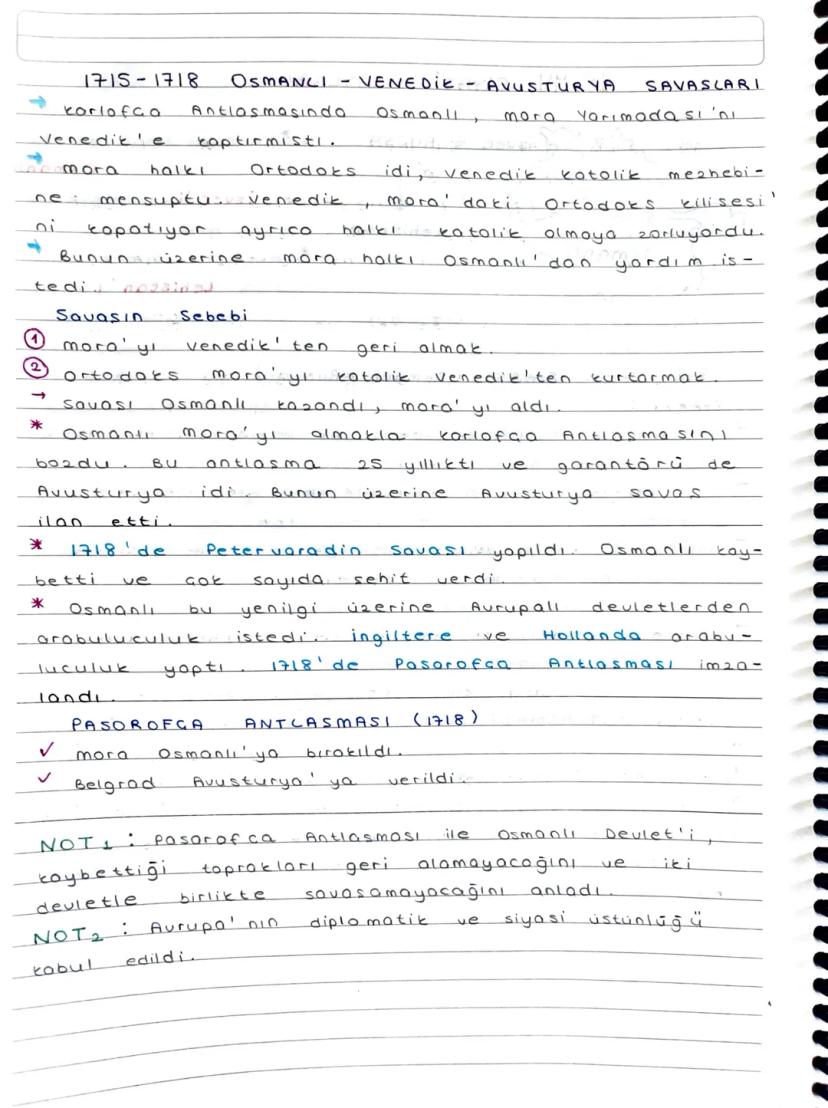 1715-1718 OSMANLI - VENEDİK - AVUSTURYA SAVASLARI
→ Karlofca Antlasmasında Osmanlı, mora Yarımadası'nı
Venedik'e kaptırmıstı.
→ mora halkı Ortodoks idi, venedik katolik mezhebi-
ne mensuptu. Venedik, mora'daki Ortodoks kilisesi'
ni kapatıyor ayrıca halkı katolik olmaya zorluyordu.
→ Bunun üzerine mora halkı Osmanlı'dan yardım is-
tedi.
Savasın Sebebi
1 mora'yı venedik'ten geri almak.
2 Ortodoks mora'yı katolik venedik'ten kurtarmak.
→ Savası Osmanlı kazandı, mora'yı aldı.
* Osmanlı mora'yı almakla karlofca Antlasmasını
bozdu. Bu antlasma 25 yıllıktı ve garantörü de
Avusturya idi. Bunun üzerine Avusturya savas
ilan etti.
* 1718'de Petervaradin Savası yapıldı. Osmanlı kay-
betti ve cok sayıda sehit verdi.
* Osmanlı bu yenilgi üzerine Avrupalı devletlerden
arabuluculuk istedi. ingiltere ve Hollanda arabu-
luculuk yaptı. 1718'de Pasarofca Antlasması imza-
landı.
PASOROFCA ANTLASMASI (1718)
✓ mora Osmanlı'ya bırakıldı.
✓ Belgrad Avusturya'ya verildi.
NOT1 : Pasarofca Antlasması ile Osmanlı Devlet'i,
kaybettiği toprakları geri alamayacağını ve iki
devletle birlikte savasamayacağını anladı.
NOT2 : Avrupa'nın diplomatik ve siyasi üstünlüğü
kabul edildi.